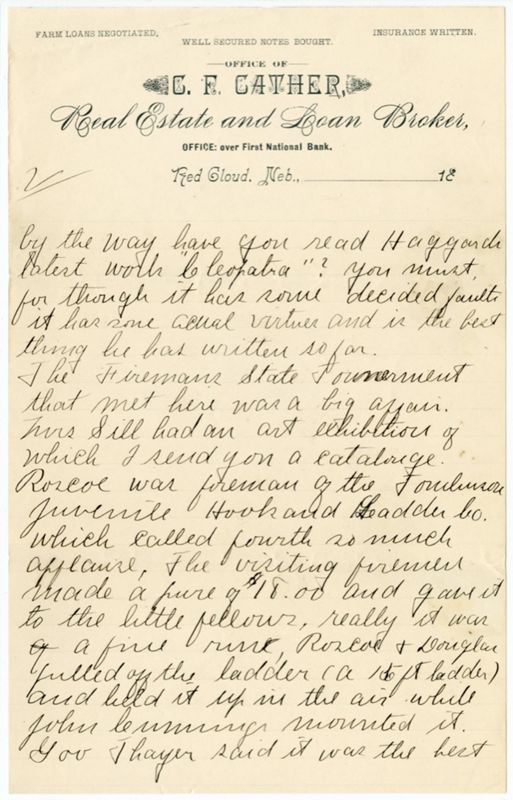 FARM LOANS NEGOTIATED,
WELL SECURED NOTES BOUGHT.
INSURANCE WRITTEN.
OFFICE OF
C. F. CATHER,
Real Estate and Loan Broker,
OFFICE: over First National Bank.
Red Cloud, Neb., 18
2/
by the way have you read Haggards
latest work "Cleopatra"? you must,
for though it has some decided faults
it has some actual virtues and is the best
thing he has written so far.
The Firemans State Tournerment
that met here was a big affair.
Mrs Sill had an art exhibition of
which I send you a catalouge.
Roscoe was foreman of the Tomlinson
Juvenile Hook and Ladder Co.
which called fourth so much
applause, The visiting firemen
made a purse of $18.00 and gave it
to the little fellows, really it was
a fine run, Roscoe & Douglas
pulled off the ladder (a 15 ft ladder)
and held it up in the air while
John Cummings mounted it.
Gov Thayer said it was the best